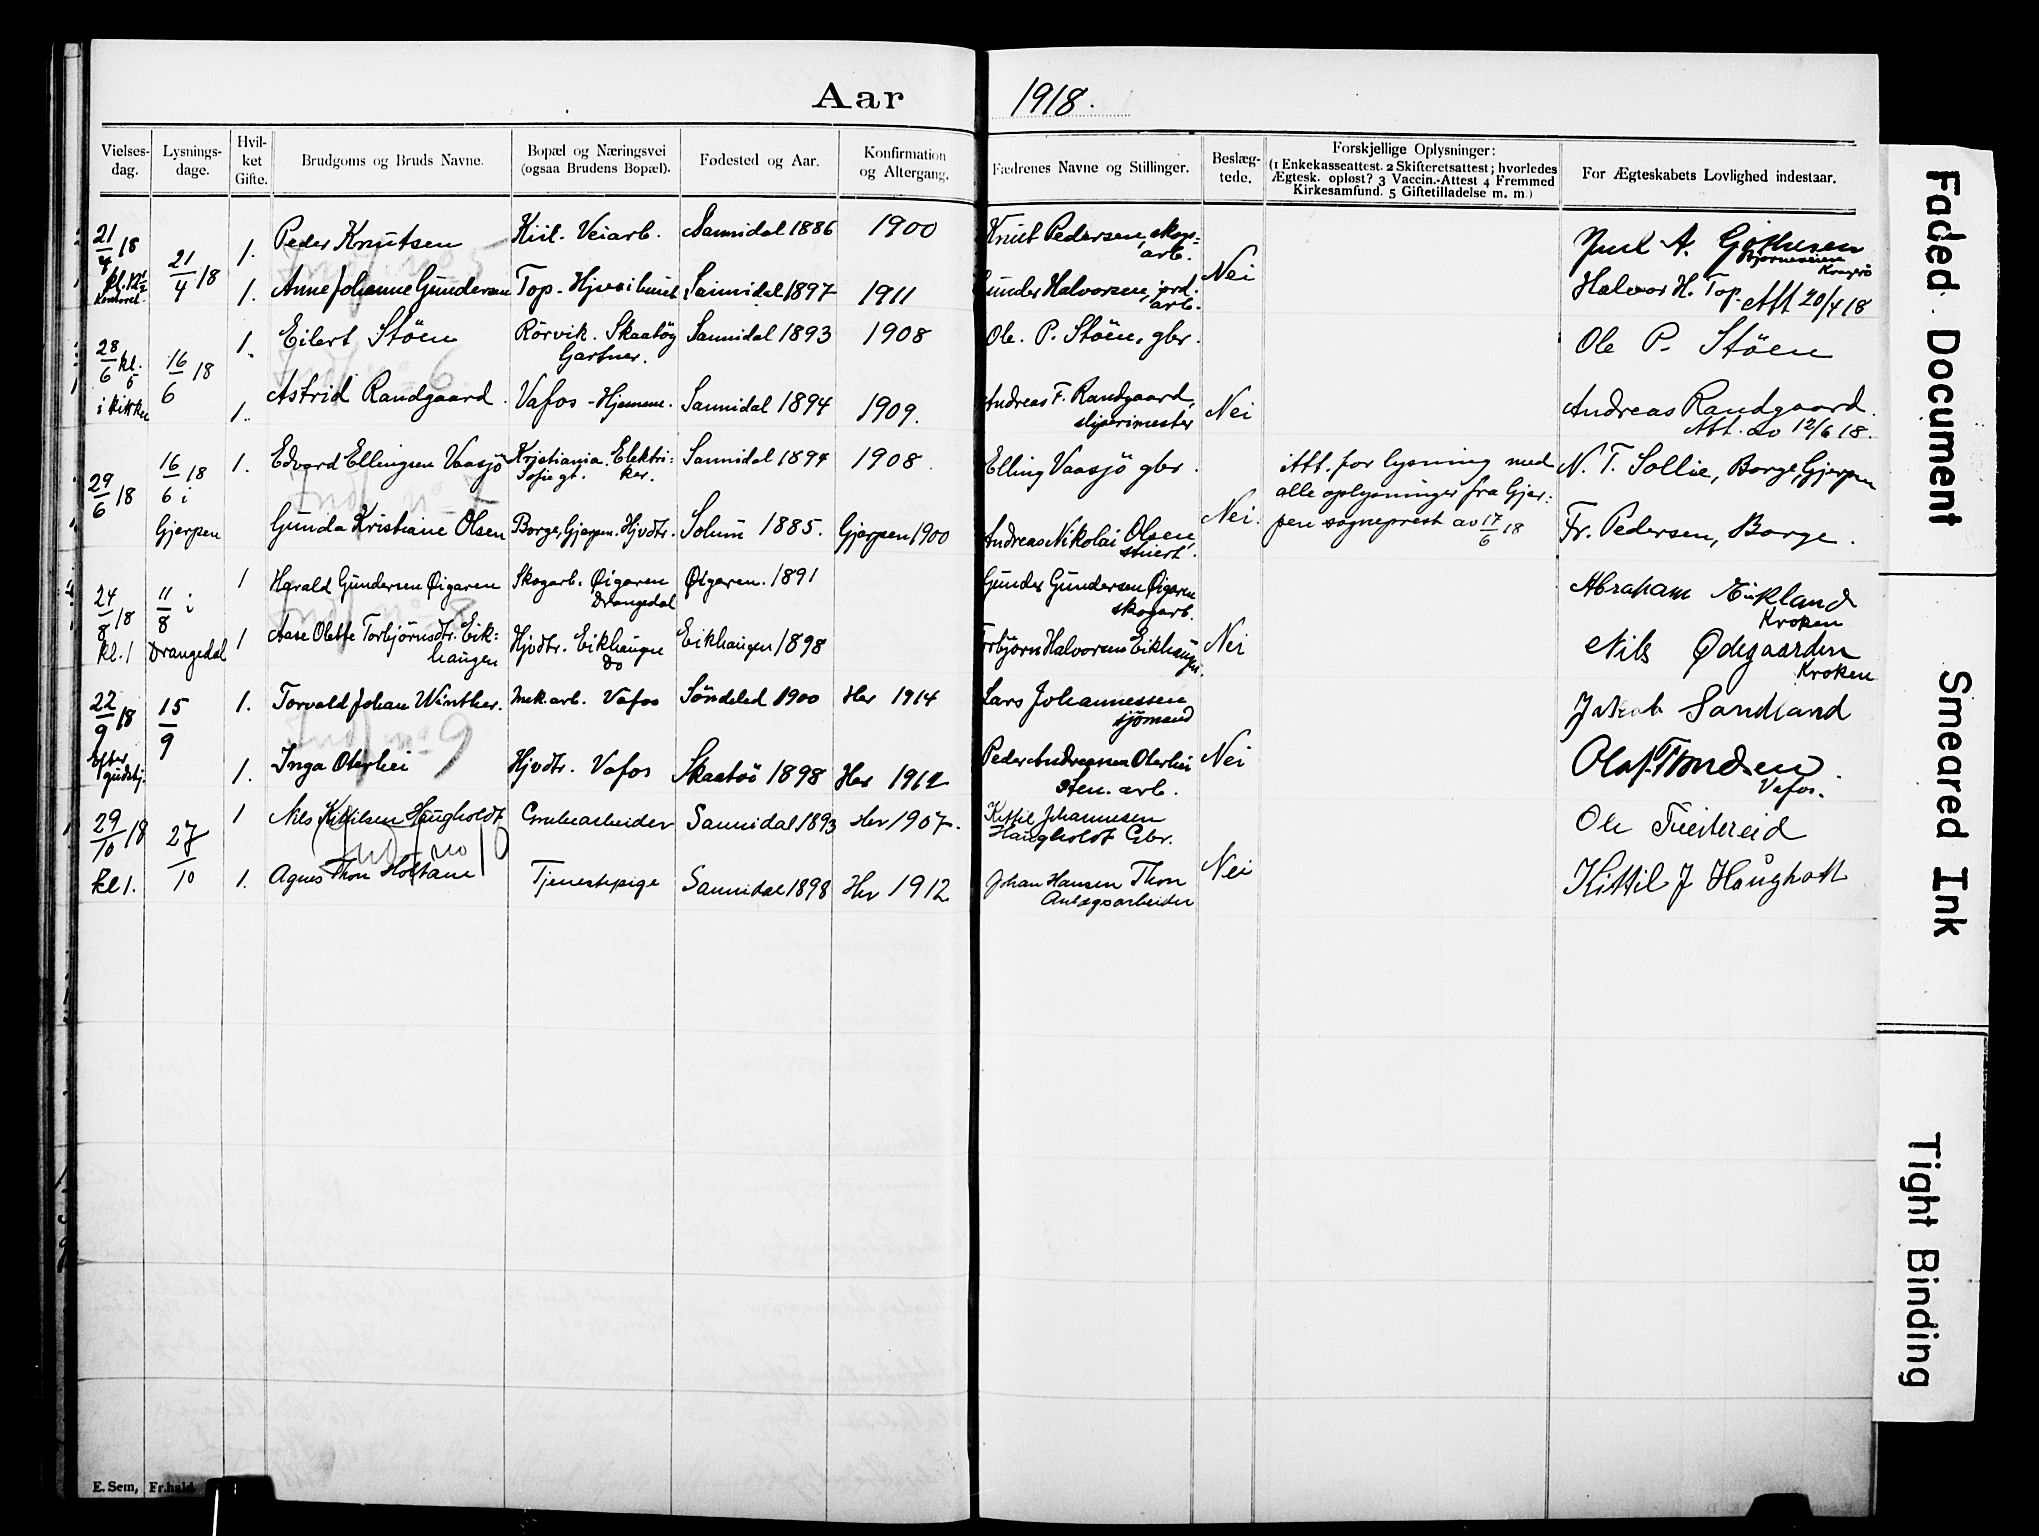 Aar 1918.
Vielses-dag. Lysnings-dage. Hvil-ket Gifte. Brudgoms og Bruds Navne. Bopæl og Næringsvei (ogsaa Brudens Bopæl). Fødested og Aar. Konfirmation og Altergang. Fædrenes Navne og Stillinger. Beslæg-tede. Forskjellige Oplysninger: (1 Enkekasseattest. 2 Skifteretsattest; hvorledes Ægtesk. opløst? 3 Vaccin.-Attest 4 Fremmed Kirkesamfund. 5 Giftetilladelse m. m.) For Ægteskabets Lovlighed indestaar.
21/4 18 21/4 18 1. Peder Knutsen Kiil. Veiarb. Sannidal 1886 1900 Knut Pedersen, skogs=
arb. Nei
Bjørneveien Kragerø
1. Anne Johanne Gundersen Top - Hjvsihuset Sannidal 1897 1911 Gunder Halvorsen, jord.
arb.
Halvor H. Top. Att 20/4 18
28/6 kl. 5 i kirken 16/6 18 1. Eilert Stöen Rörvik. Skaatöy Sannidal 1893 1908 Ole. P. Stöen, gbr. Ole P. Stöen
Gartner.
1. Astrid Randgaard. Vafos - Hjemme. Sannidal 1894 1909. Andreas F. Randgaard, Nei Andreas Randgaard.
sliperimester Att. av 12/6 18.
29/6 18 16/6 18 i Gjerpen 1. Edvard Ellingsen Vaasjö Kristiania. Elektri-
Sofiegt. ker. Sannidal 1894 1908. Elling Vaasjö gbr. Att. for lysning med N. T. Sollie, Borge, Gjerpen
alle oplysninger fra Gjer:
pen sogneprest av 17/6 18
Gunda Kristiane Olsen Borge, Gjerpen. Hjvdtr. Solum 1885. Gjerpen 1900 Andreas Nikolai Olsen, Nei. Fr. Pedersen, Borge.
stuert.
24/8 18 kl. 1 11/8 i Drangedal 1 Harald Gundersen Øigaren Skogarb. Øigaren Øigaren. 1891 Gunder Gundersen Øigaren
Drangedal skogarb. Kroken
1 Aase Olette Torbjörnsdtr. Eik= Hjvdtr. Eikhaugen Eikhaugen 1898 Torbjörn Halvorsen Eikhaugen. Nei Nils Ødegaarden
haugen Do Kroken
22/9 18 Efter gudstj. 15/9 1. Torvald Johan Winther. Mek. arb. Vafos Söndeled 1900 Her 1914 Lars Johannessen Jakob Sandland
sjömand
1. Inga Oterhei Hjvdtr. Vafos Skaatöi 1898 Her 1912 Peder Andreassen Oterhei Nei
Sten. arb. Vafos.
29/10 18 kl 1. 27/10 1 Nils Kittilsen Haugholdt Grubearbeider Sannidal 1893 Her 1907. Kittil Johannesen
Haugholdt Gbr.
1. Agnes Thon Holtane Tjenestepige Sannidal 1898 Her 1912 Johan Hansen Thon Nei Kittil J Haugholt
Anlægsarbeider
E. Sem, Fr.hald.
Faded Document
Smeared Ink
Tight Binding